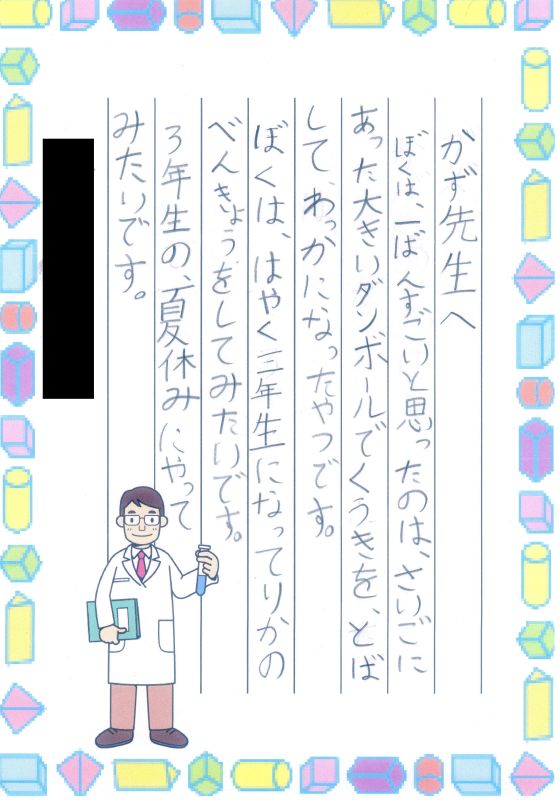 かず先生へ
ぼくは、一ばんすごいと思ったのは、さいごに
あった大きいダンボールでくうきを、とば
して、わっかになったやつです。
ぼくは、はやく三年生になってりかの
べんきょうをしてみたいです。
3年生の、夏休みにやって
みたいです。